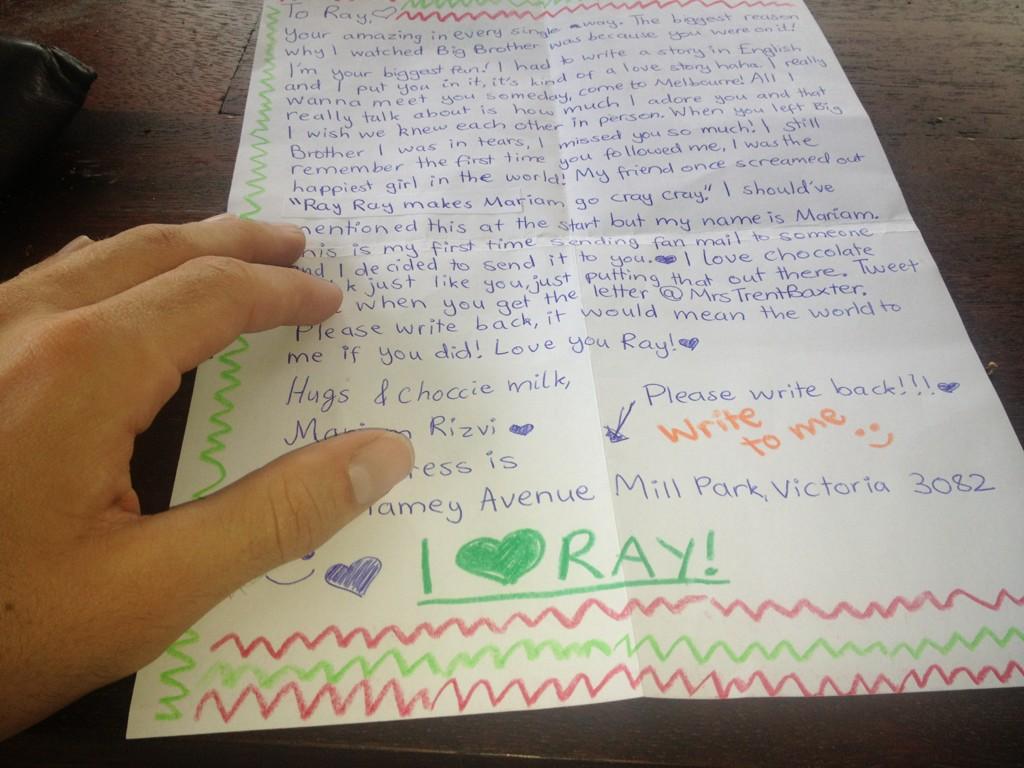 To Ray,
Your amazing in every single way. The biggest reason
why I watched Big Brother was because you were on it!
I'm your biggest fan! I had to write a story in English
and I put you in it, it's kind of a love story haha. I really
wanna meet you someday, come to Melbourne! All I
really talk about is how much I adore you and that
I wish we knew each other in person. When you left Big
Brother I was in tears, I missed you so much! I still
remember the first time you followed me, I was the
happiest girl in the world! My friend once screamed out
"Ray Ray makes Mariam go cray cray." I should've
mentioned this at the start but my name is Mariam.
This is my first time sending fan mail to someone
and I decided to send it to you. I love chocolate
just like you, just putting that out there. Tweet
when you get the letter @MrsTrentBaxter.
Please write back, it would mean the world to
me if you did! Love you Ray!
Hugs & choccie milk,
Please write back!!!
Mariam Rizvi
write
to me
ress is
amey Avenue Mill Park, Victoria 3082
I RAY!